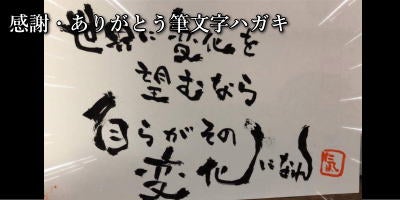 感謝・ありがとう筆文字ハガキ
世界に変化を
望むなら
自らがその
変化になれ
気